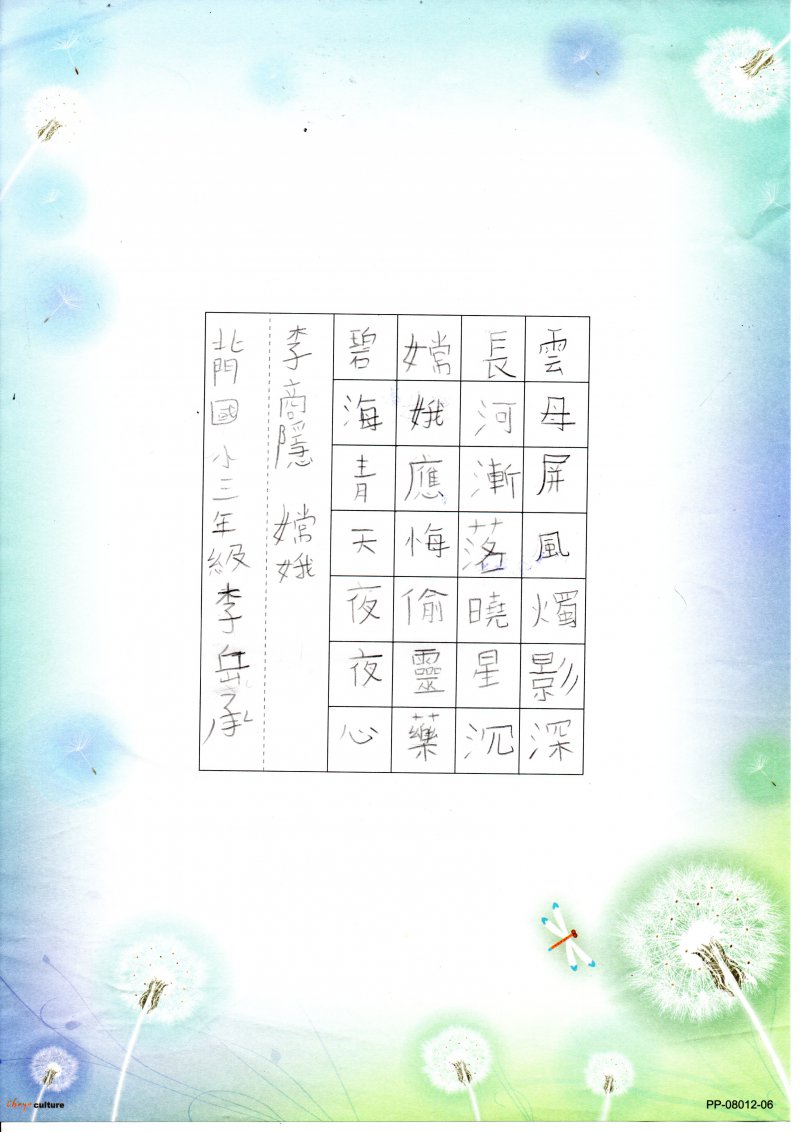 雲母屏風燭影深
長河漸落曉星沉
嫦娥應悔偷靈藥
碧海青天夜夜心
李商隱 嫦娥
北門國小三年級李岳承
Cheng culture
PP-08012-06